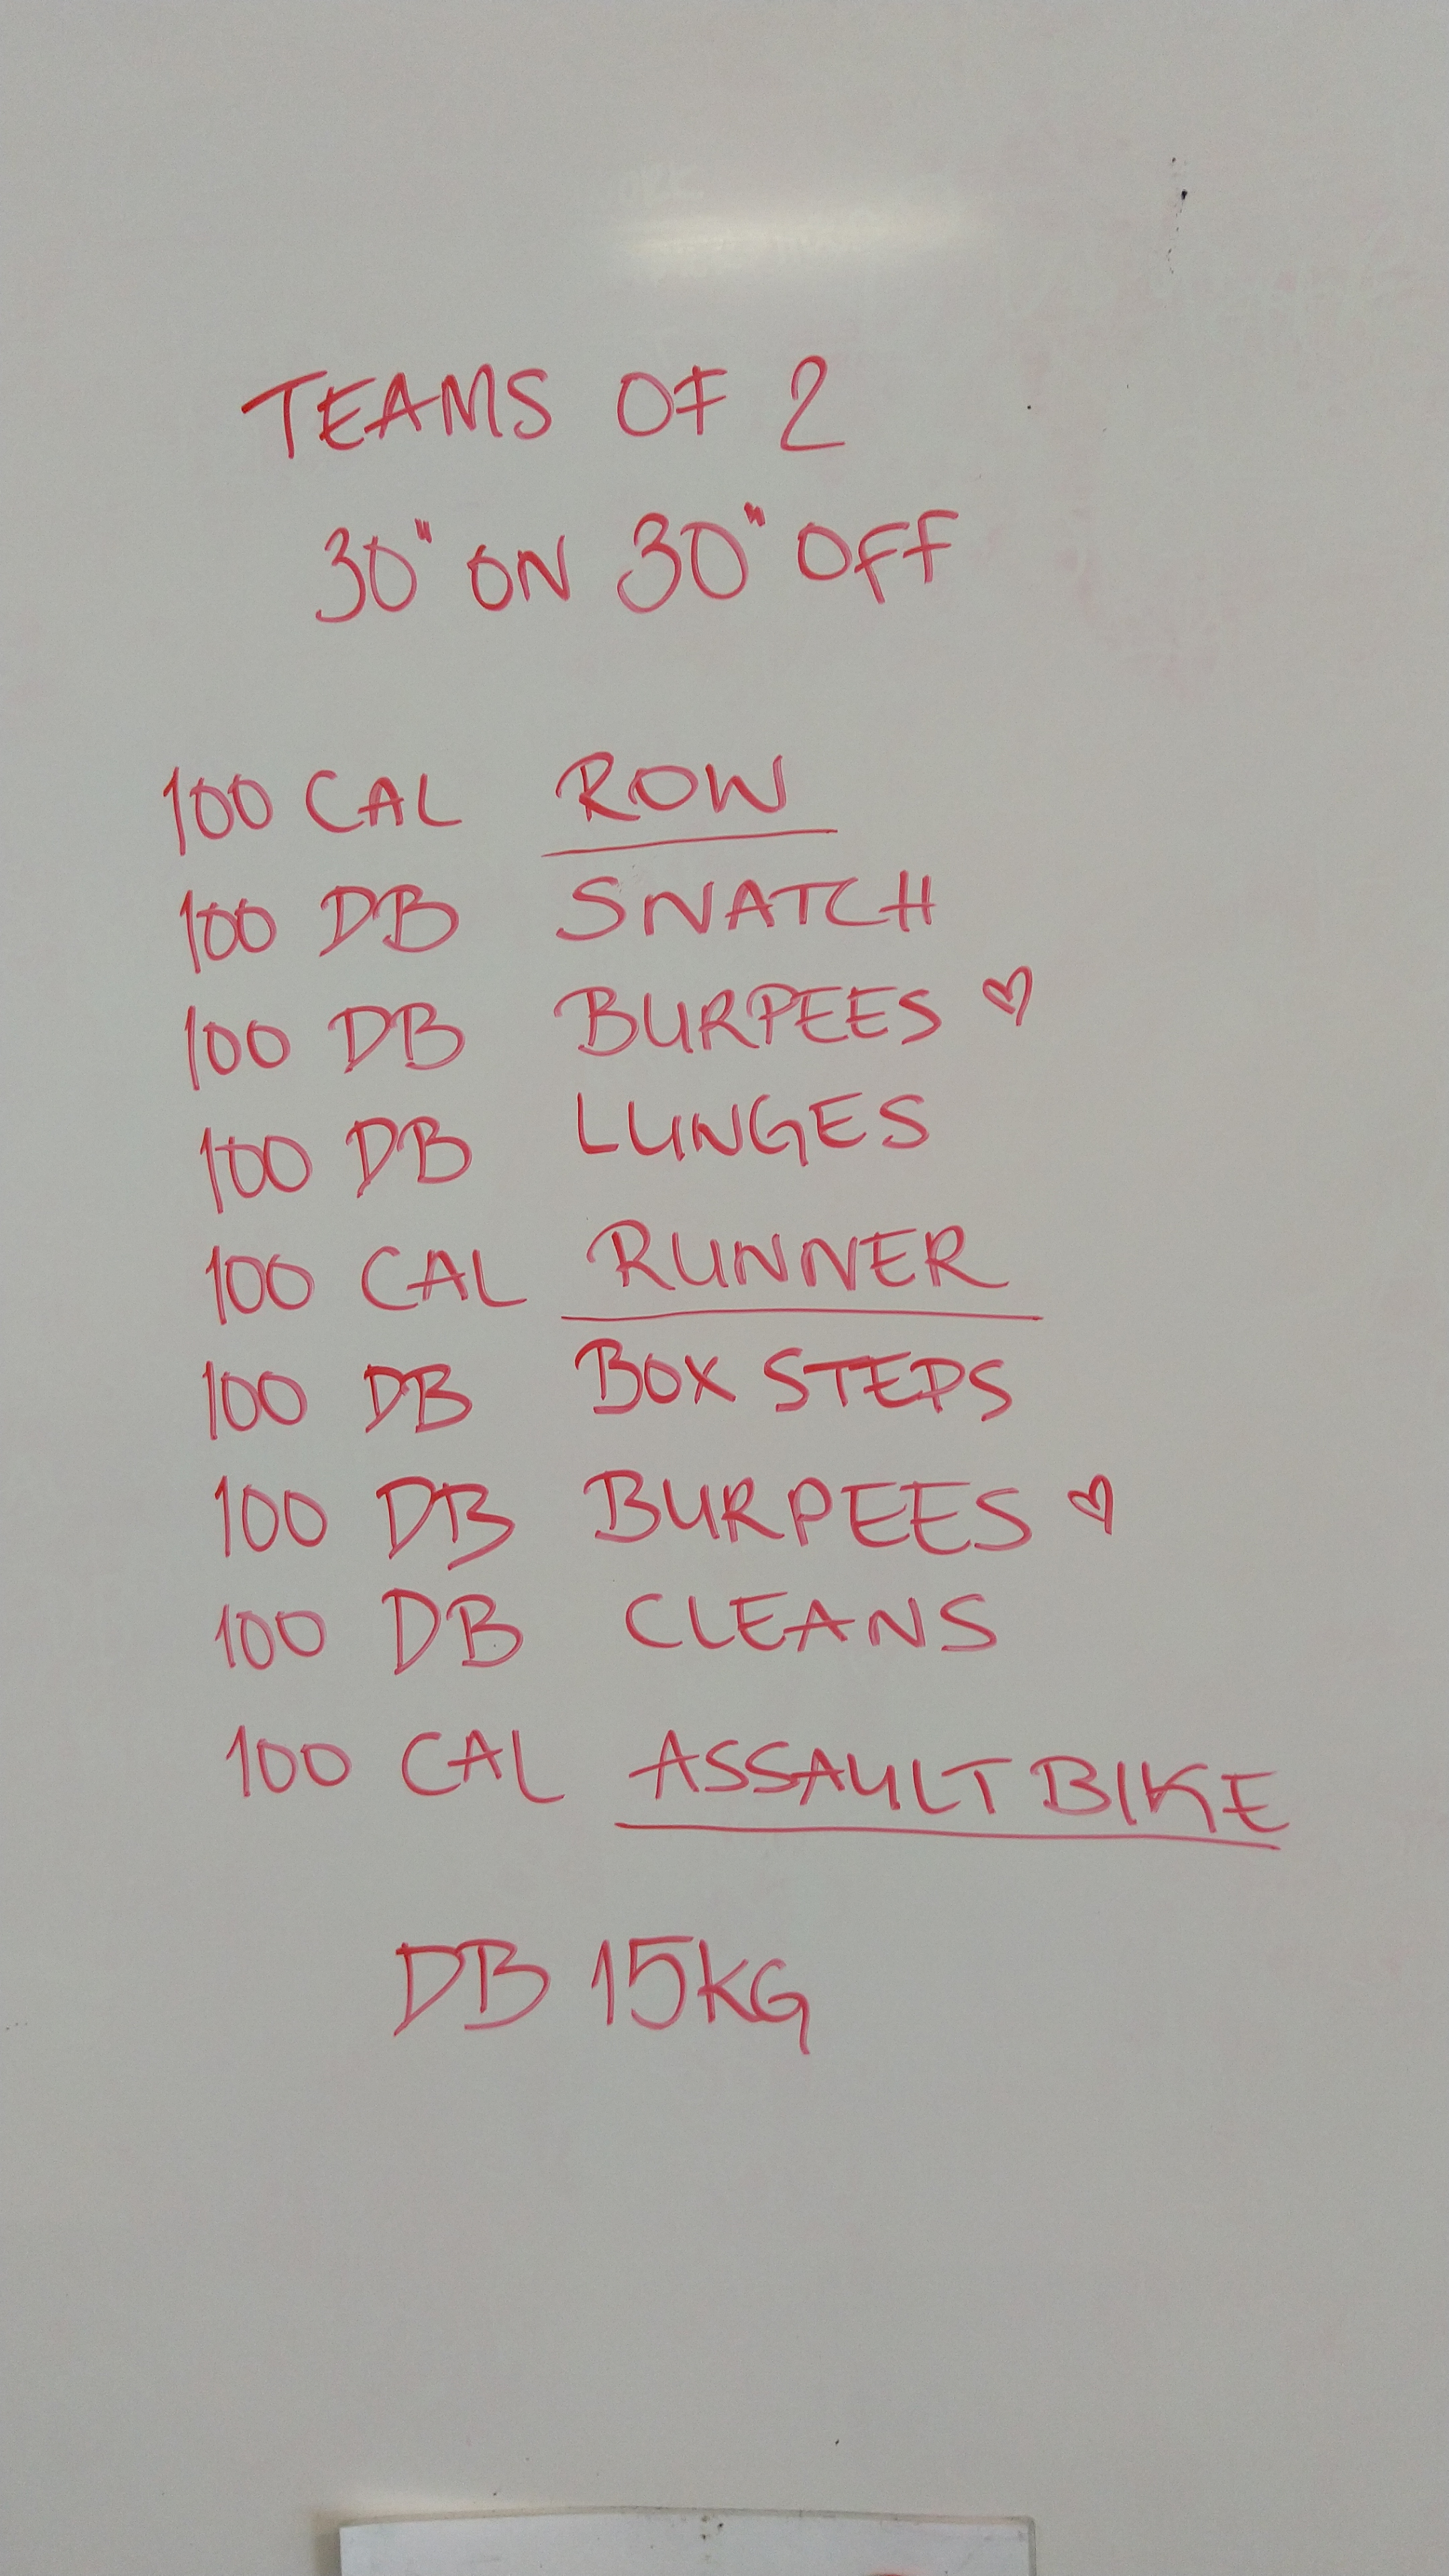 TEAMS OF 2
30" ON 30" OFF
100 CAL ROW
100 DB SNATCH
100 DB BURPEES ♡
100 DB LUNGES
100 CAL RUNNER
100 DB BOX STEPS
100 DB BURPEES ♡
100 DB CLEANS
100 CAL ASSAULT BIKE
DB 15KG